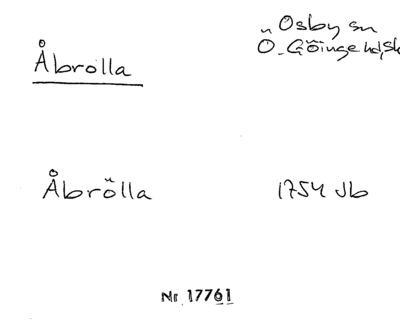 Åbrolla
Osby sn
Ö. Göinge hd, Sk
Åbrölla 1754 Jb
Nr 17761